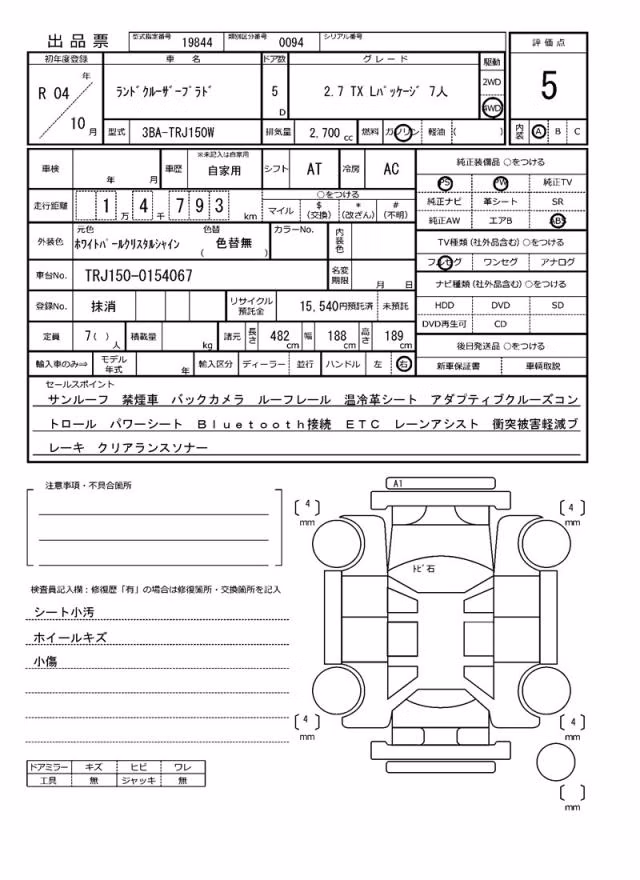 出品票 型式指定番号 19844 類別区分番号 0094 シリアル番号
初年度登録 車 名 ドア数 グレード 駆動 評価点
R 04 年 10 月
ﾗﾝﾄﾞｸﾙｰｻﾞｰﾌﾟﾗﾄﾞ 5 D 2.7 TX Lﾊﾟｯｹｰｼﾞ 7人 2WD 4WD
5
型式 3BA-TRJ150W 排気量 2,700 cc 燃料 ガソリン 軽油 ( ) 内装 A B C
車検 年 月 車歴 ※未記入は自家用 自家用 シフト AT 冷房 AC
走行距離 1 万 4 千 7 9 3 km
○をつける
マイル $ (交換) * (改ざん) # (不明)
外装色 元色 ﾎﾜｲﾄﾊﾟｰﾙｸﾘｽﾀﾙｼｬｲﾝ 色替 ( 色替無 ) カラーNo. 内装色
車台No. TRJ150-0154067 名変期限 月 日
登録No. 抹消 リサイクル預託金 15,540円預託済 未預託
定員 7( )人 積載量 kg 諸元 長さ 482 cm 幅 188 cm 高さ 189 cm
輸入車のみ⇒ モデル年式 年 輸入区分 ディーラー 並行 ハンドル 左 右
純正装備品 ○をつける
PS PW 純正TV
純正ナビ 革シート SR
純正AW エアB ABS
TV種類 (社外品含む) ○をつける
フルセグ ワンセグ アナログ
ナビ種類 (社外品含む) ○をつける
HDD DVD SD
DVD再生可 CD
後日発送品 ○をつける
新車保証書 車輌取説
セールスポイント
サンルーフ 禁煙車 バックカメラ ルーフレール 温冷革シート アダプティブクルーズコン
トロール パワーシート Ｂｌｕｅｔｏｏｔｈ接続 ＥＴＣ レーンアシスト 衝突被害軽減ブ
レーキ クリアランスソナー
注意事項・不具合箇所
検査員記入欄：修復歴「有」の場合は修復箇所・交換箇所を記入
シート小汚
ホイールキズ
小傷
ドアミラー キズ ヒビ ワレ
工具 無 ジャッキ 無
A1
[ 4 ] mm
[ 4 ] mm
ﾄﾋﾞ石
[ 4 ] mm
[ 4 ] mm
[ ] mm